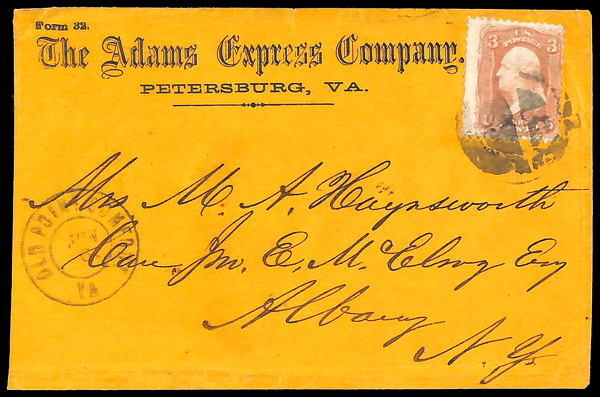 Form 32.
The Adams Express Company.
PETERSBURG, VA.
3 U.S. POSTAGE 3
Mrs M. A. Haynsworth
OLD POINT COMFORT
JUN
VA
Care Jno. E. McElroy Esq
Albany
N. Y.